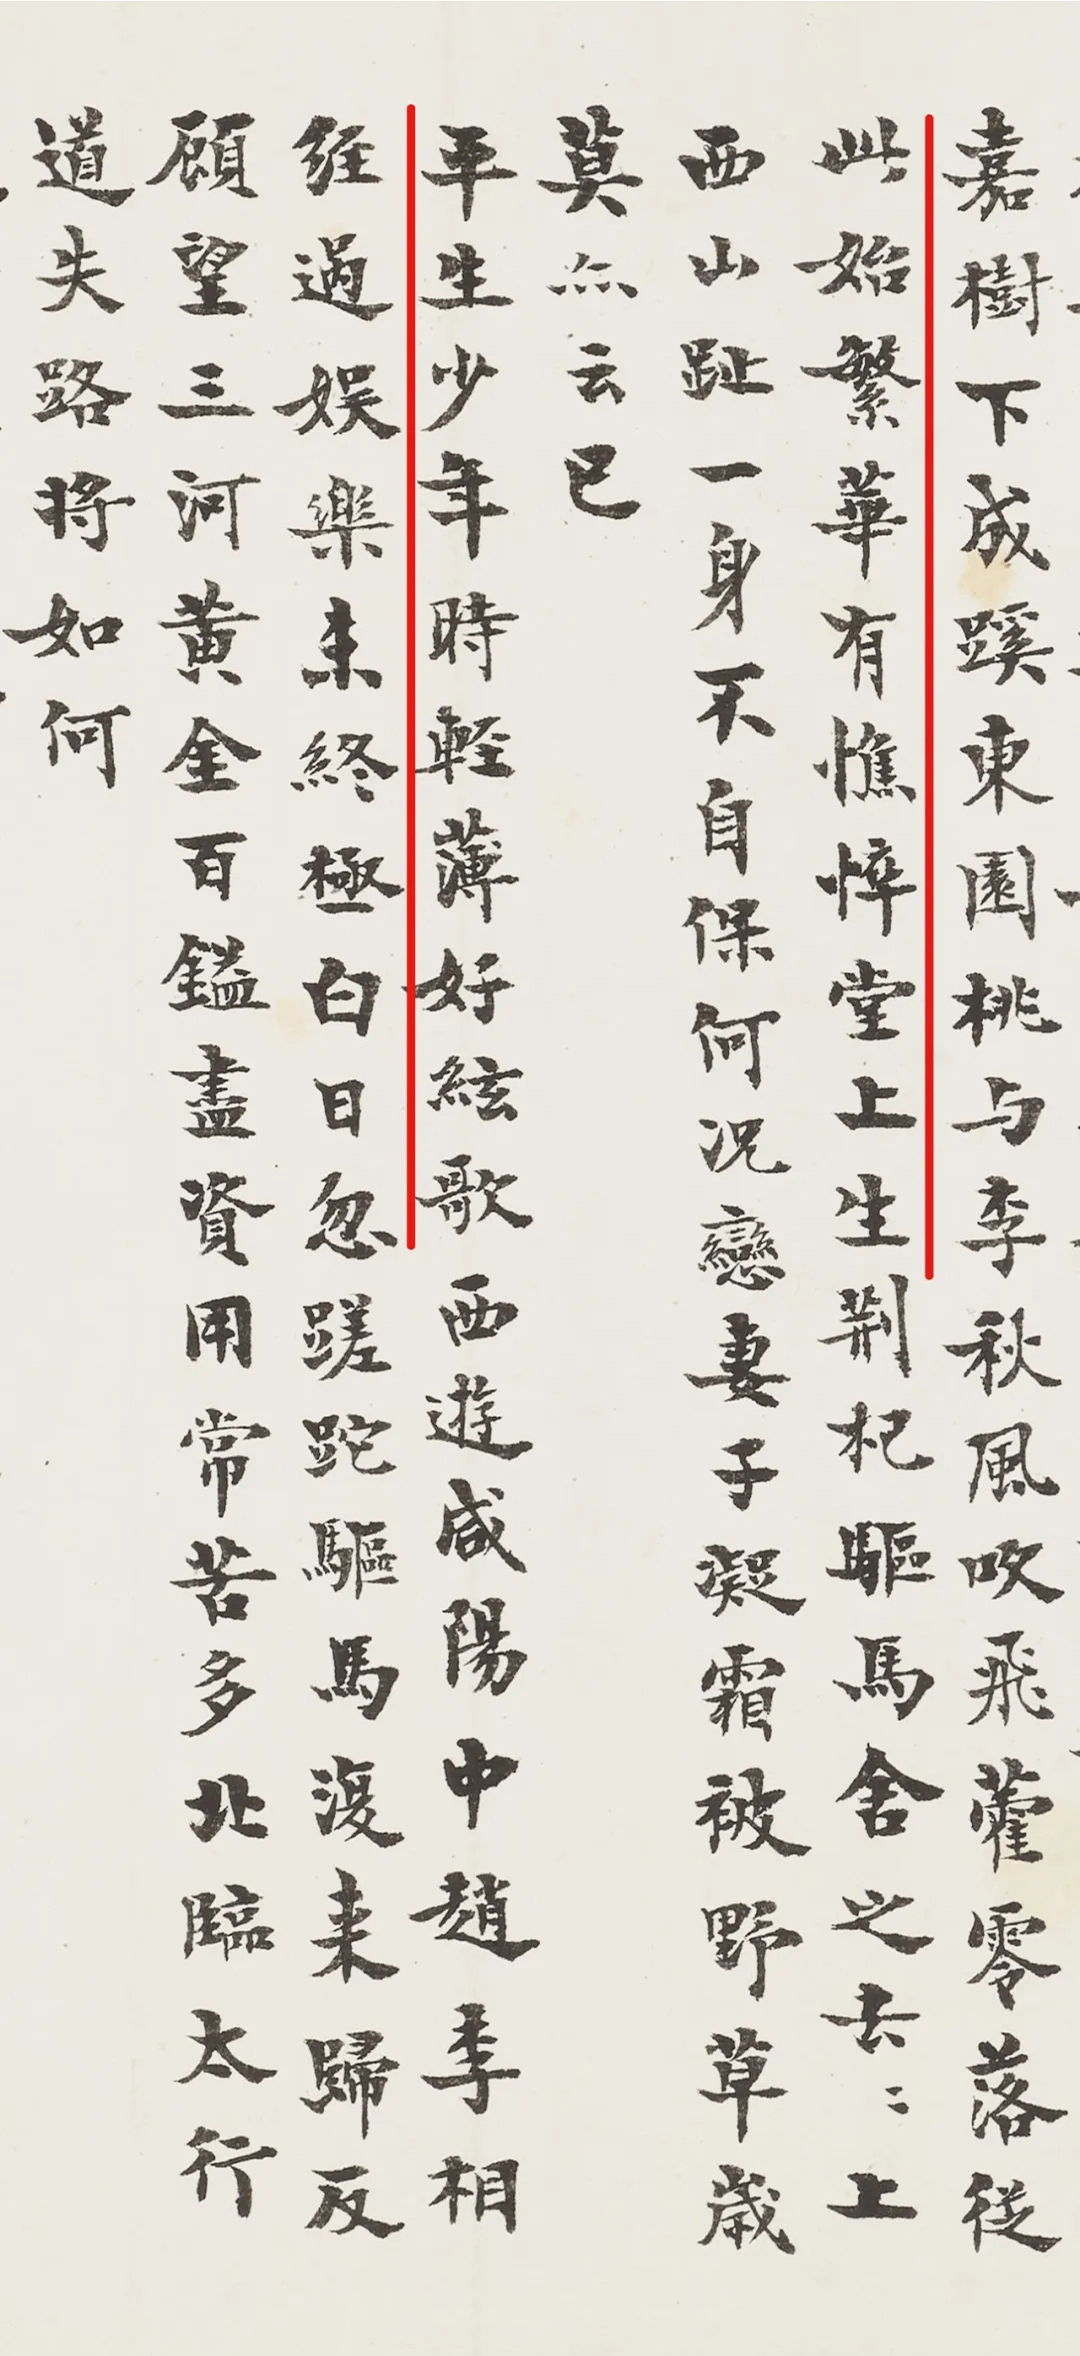 嘉樹下成蹊東園桃与李秋風吹飛藿零落從
此始繁華有憔悴堂上生荆杞驅馬舍之去〻上
西山趾一身不自保何況戀妻子凝霜被野草歲
莫亦云已
平生少年時輕薄好絃歌西遊咸陽中趙李相
経過娱樂未終極白日忽蹉跎驅馬復来歸反
顧望三河黄金百鎰盡資用常苦多北臨太行
道失路将如何